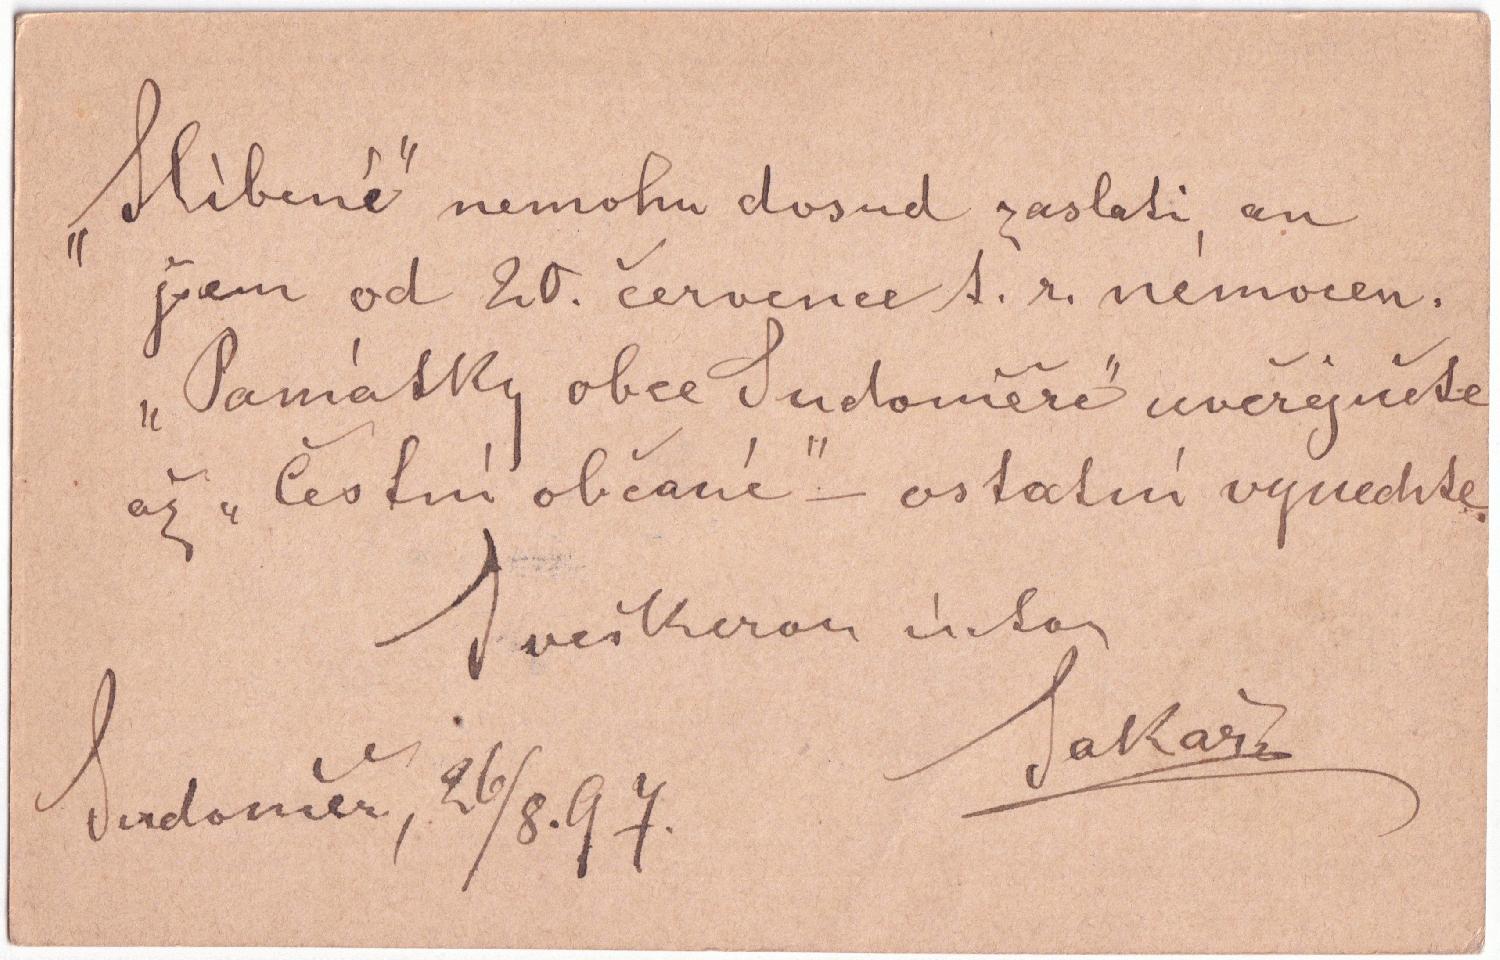 „Slíbené" nemohu dosud zaslati, an
jsem od 20. července t. r. nemocen.
„Památky obce Sudoměře" uveřejněte
až „Čestní občané" – ostatní vynechte.
S veškerou úctou
Sakař
Sudoměř, 26/8.97.